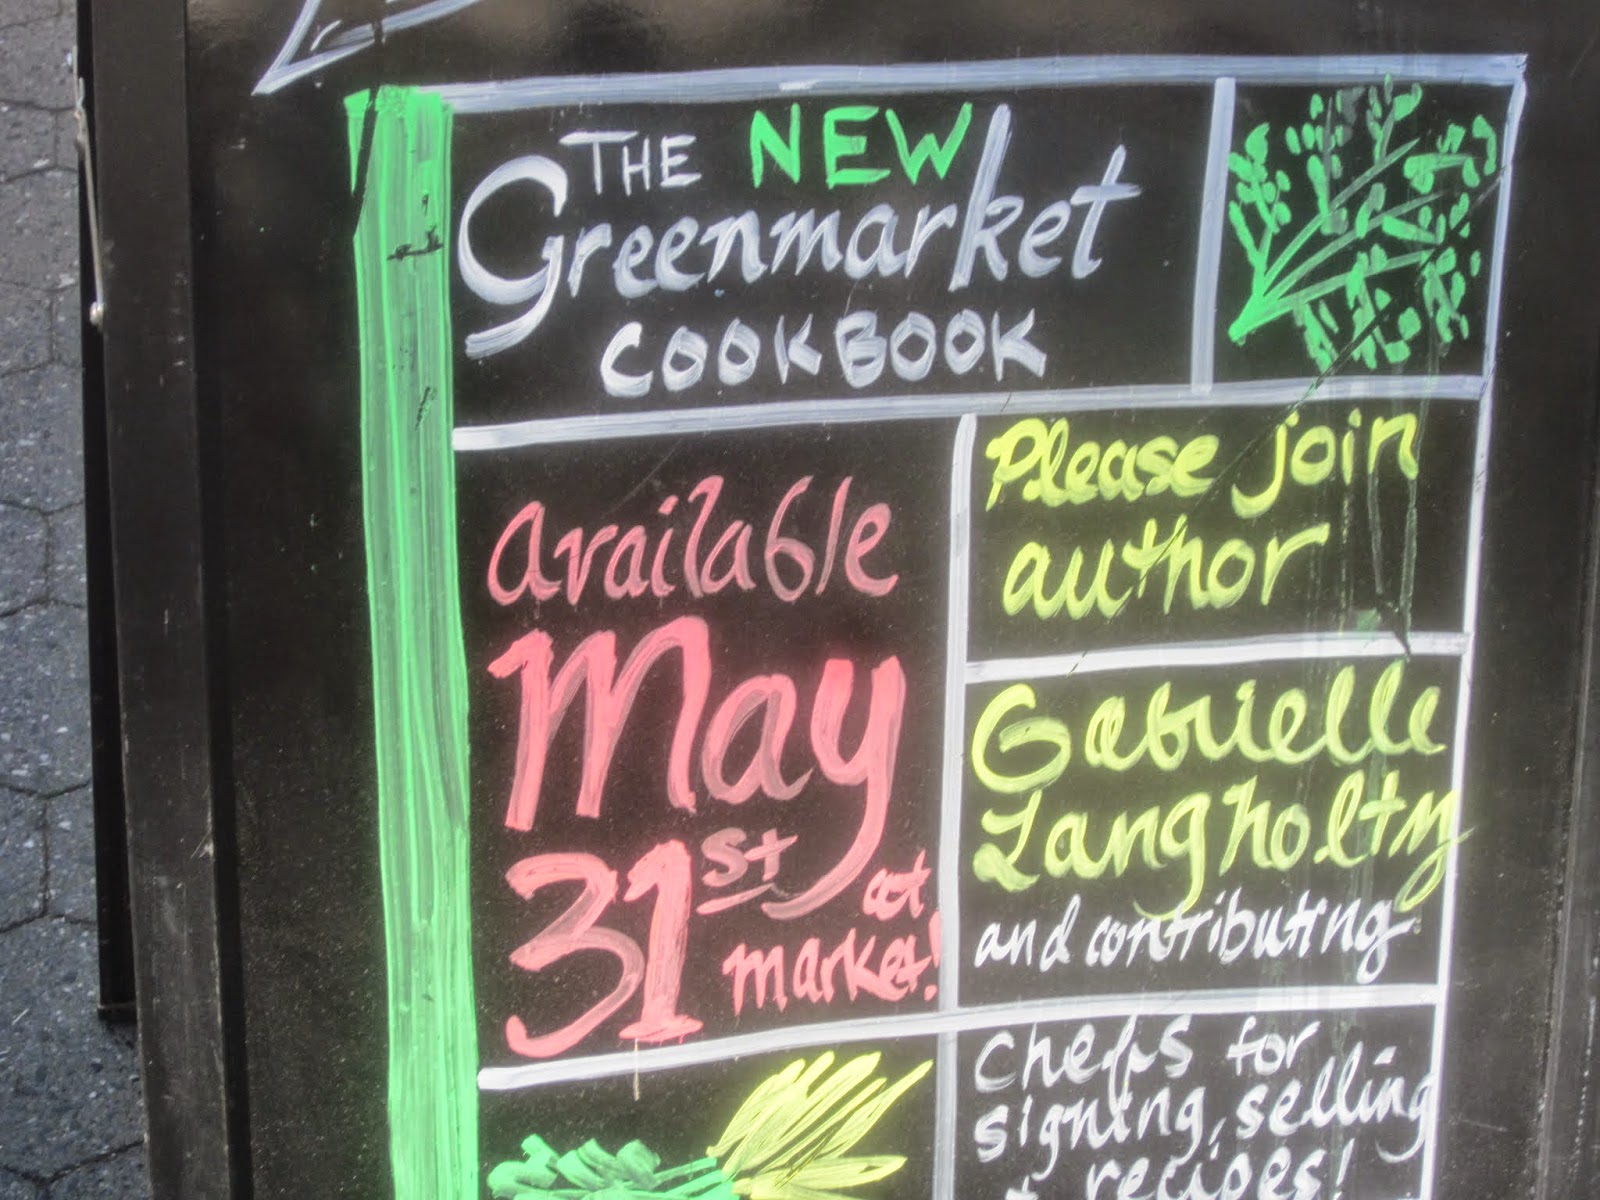 THE NEW
Greenmarket
COOKBOOK
Available
May
31st at
market!
Please join
author
Gabrielle
Langholtz
and contributing
Chefs for
signing, selling
+ recipes!